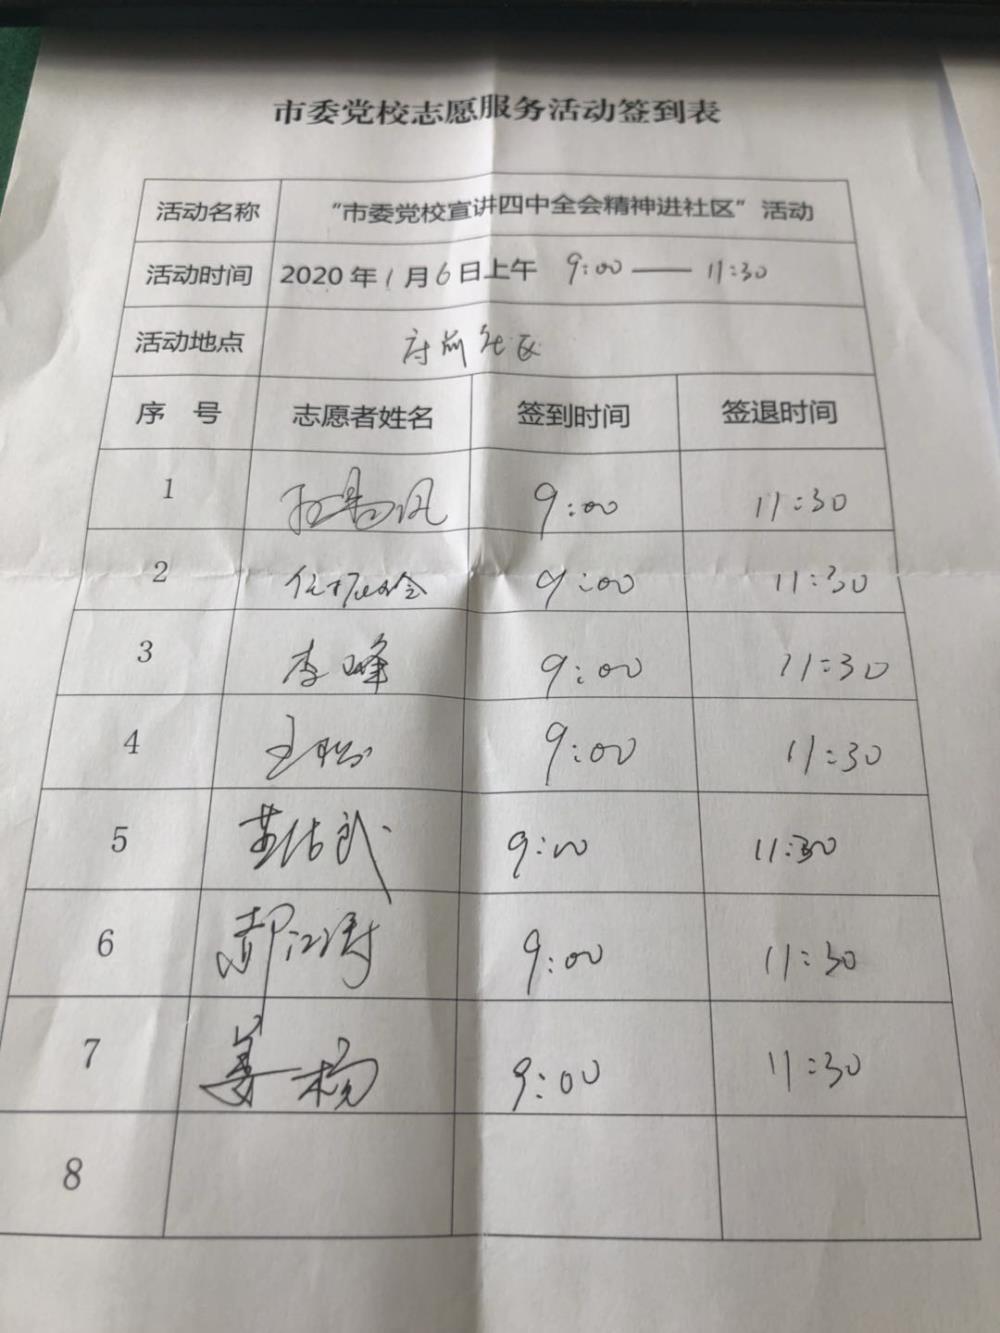 市委党校志愿服务活动签到表
活动名称 “市委党校宣讲四中全会精神进社区”活动
活动时间 2020年1月6日上午 9:00——11:30
活动地点 府前社区
序 号 志愿者姓名 签到时间 签退时间
1 9:00 11:30
2 9:00 11:30
3 李峰 9:00 11:30
4 9:00 11:30
5 9:00 11:30
6 郝江涛 9:00 11:30
7 姜杨 9:00 11:30
8